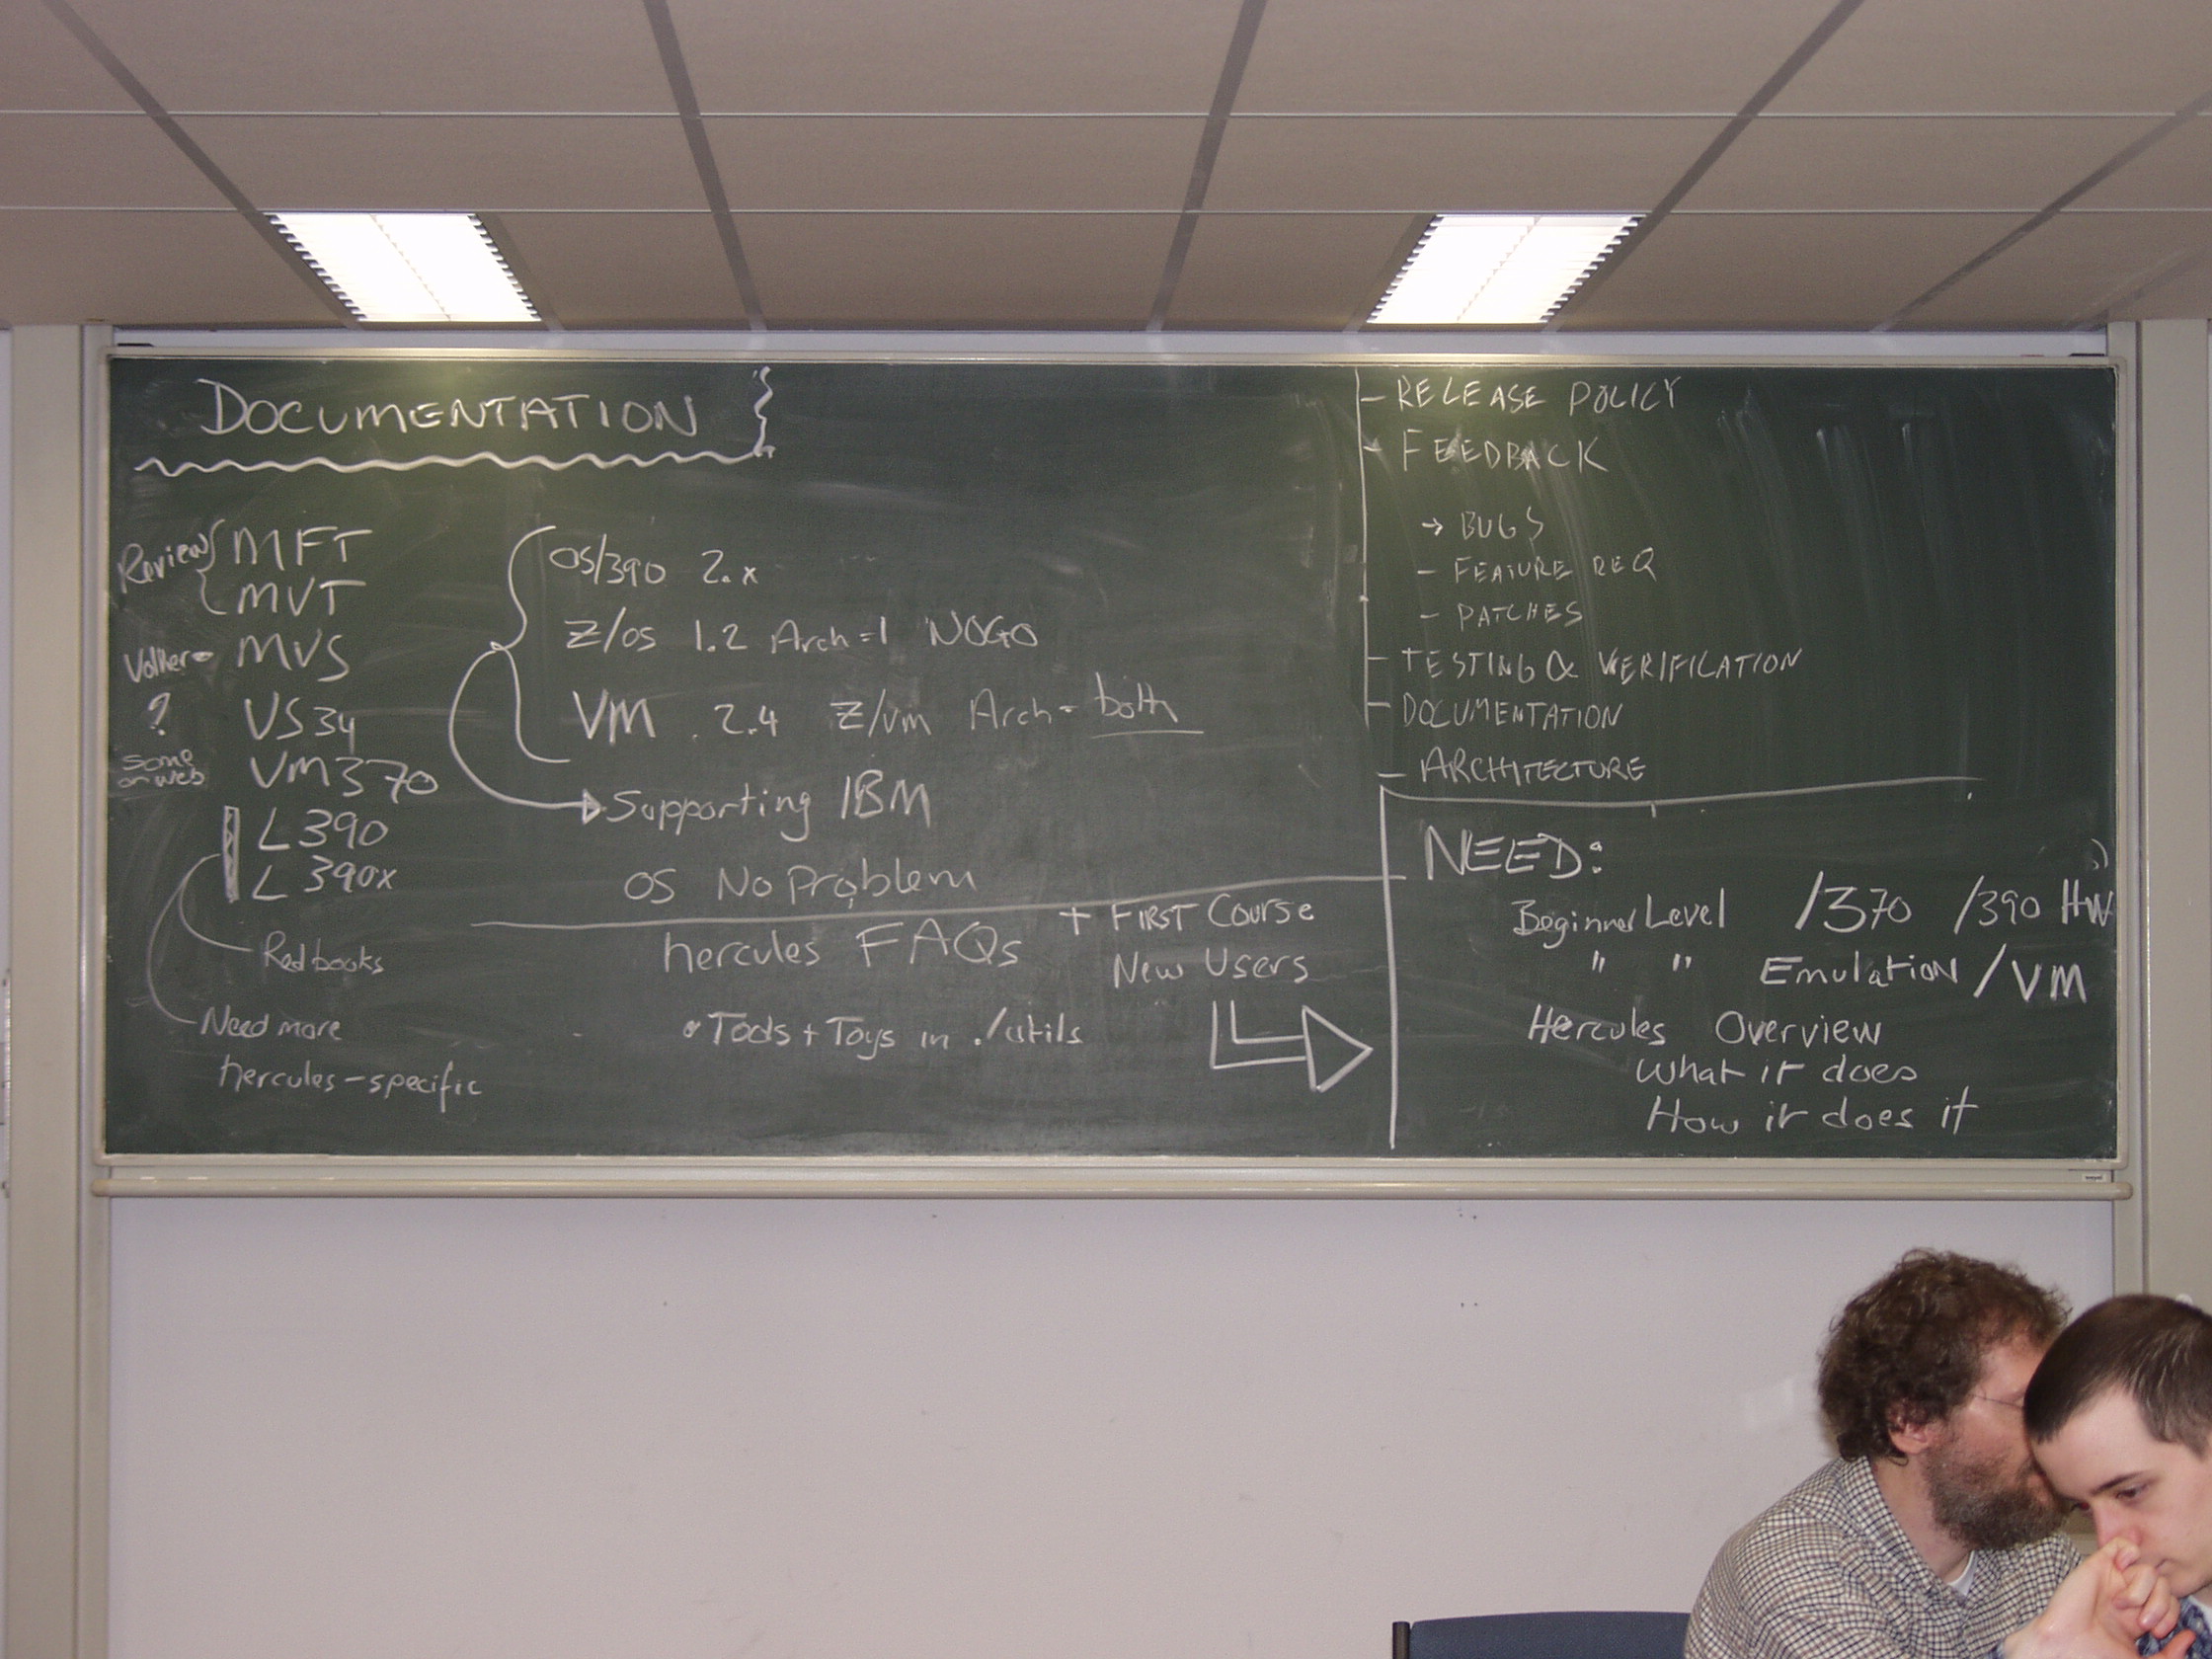 DOCUMENTATION
Review { MFT
MVT
Volker MVS
? VS34
Some on web VM370
L390
L390x
Redbooks
Need more
hercules-specific
OS/390 2.x
Z/OS 1.2 Arch=1 NOGO
VM 2.4 Z/VM Arch= both
Supporting IBM
OS No Problem
hercules FAQs
+ FIRST Course
New Users
• Tools + Toys in ./utils
- RELEASE POLICY
- FEEDBACK
→ BUGS
- FEATURE REQ
- PATCHES
- TESTING & VERIFICATION
- DOCUMENTATION
- ARCHITECTURE
NEED:
Beginner Level /370 /390 HW
" " Emulation /VM
Hercules Overview
What it does
How it does it